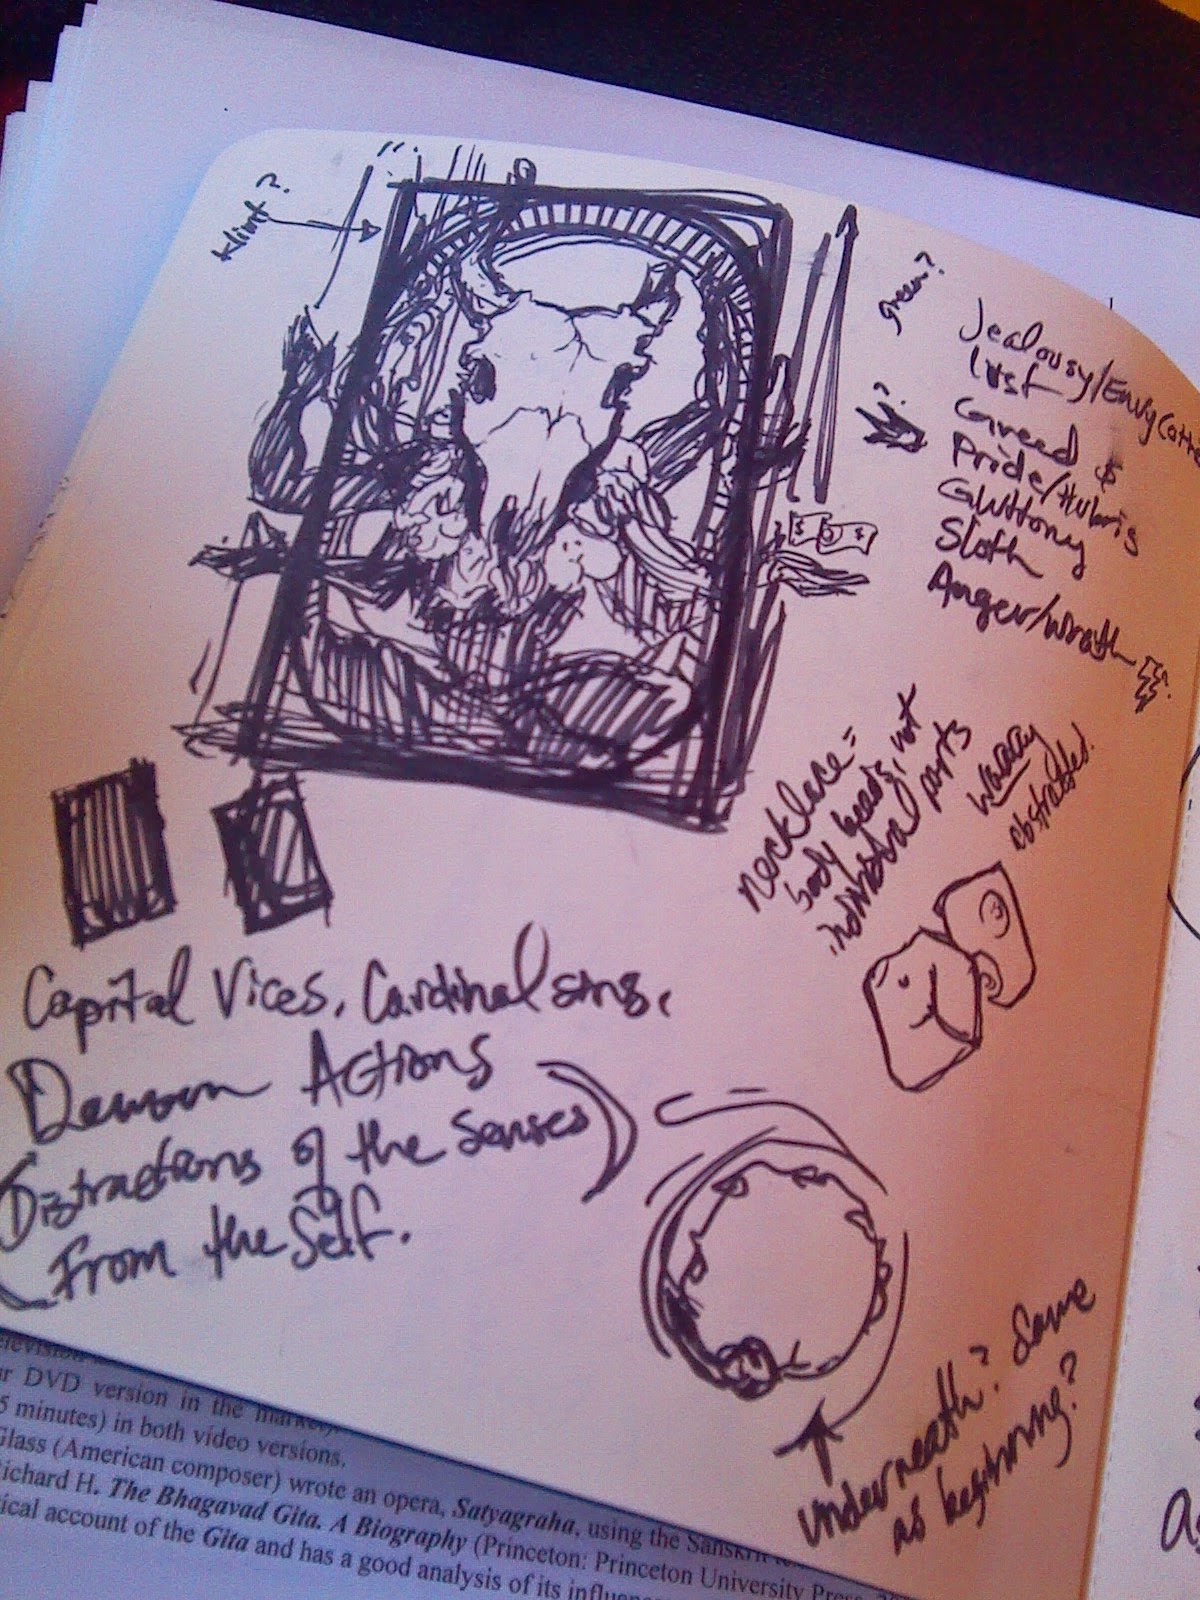 Klimt?
green?
Jealousy/Envy
lust
Greed $
Pride/Hubris
Gluttony
Sloth
Anger/Wrath
?
?
$ $
necklace =
body beads, not
individual parts
abstracted.
Capital Vices, Cardinal sins,
Demon Actions
(Distractions of the Senses)
From the Self.
underneath? Same
as beginning?
r DVD version in the market
5 minutes) in both video versions.
Glass (American composer) wrote an opera, Satyagraha, using the Sanskrit
Richard H. The Bhagavad Gita. A Biography (Princeton: Princeton University Press
ical account of the Gita and has a good analysis of its